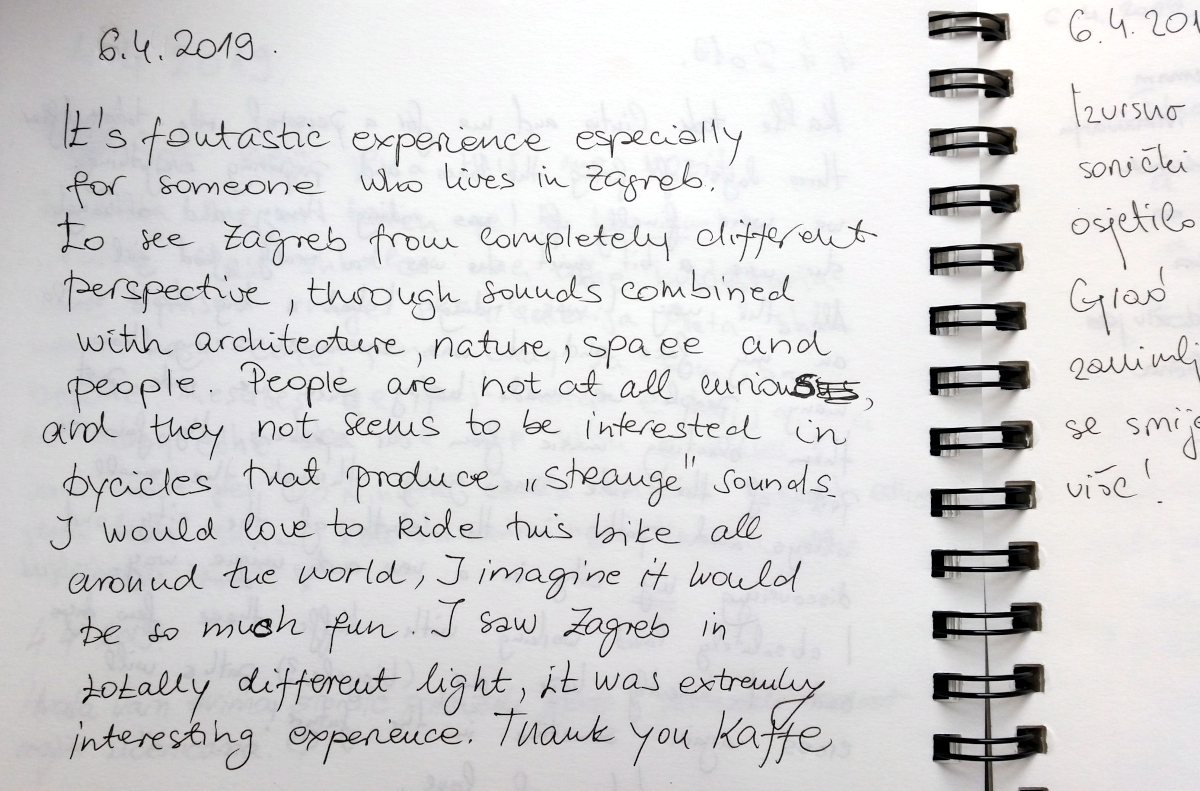 6.4.2019.
It's fantastic experience especially
for someone who lives in Zagreb.
to see Zagreb from completely different
perspective, through sounds combined
with architecture, nature, space and
people. People are not at all curious,
and they not seems to be interested in
bycicles that produce „strange" sounds.
I would love to ride this bike all
around the world, I imagine it would
be so much fun. I saw Zagreb in
totally different light, it was extremly
interesting experience. Thank you Kaffe
6.4.201
Izursno
sonički
osjetilo
Grad
zanimlj
se smije
više!